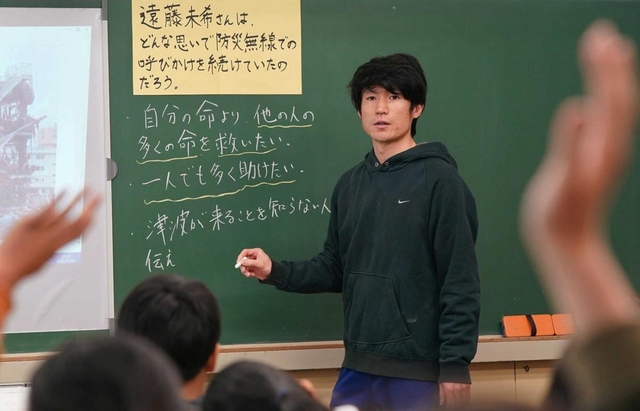 遠藤未希さんは、
どんな思いで防災無線での
呼びかけを続けていたの
だろう。
・自分の命より、他の人の
多くの命を救いたい。
・一人でも多く助けたい。
・津波が来ることを知らない人
伝え